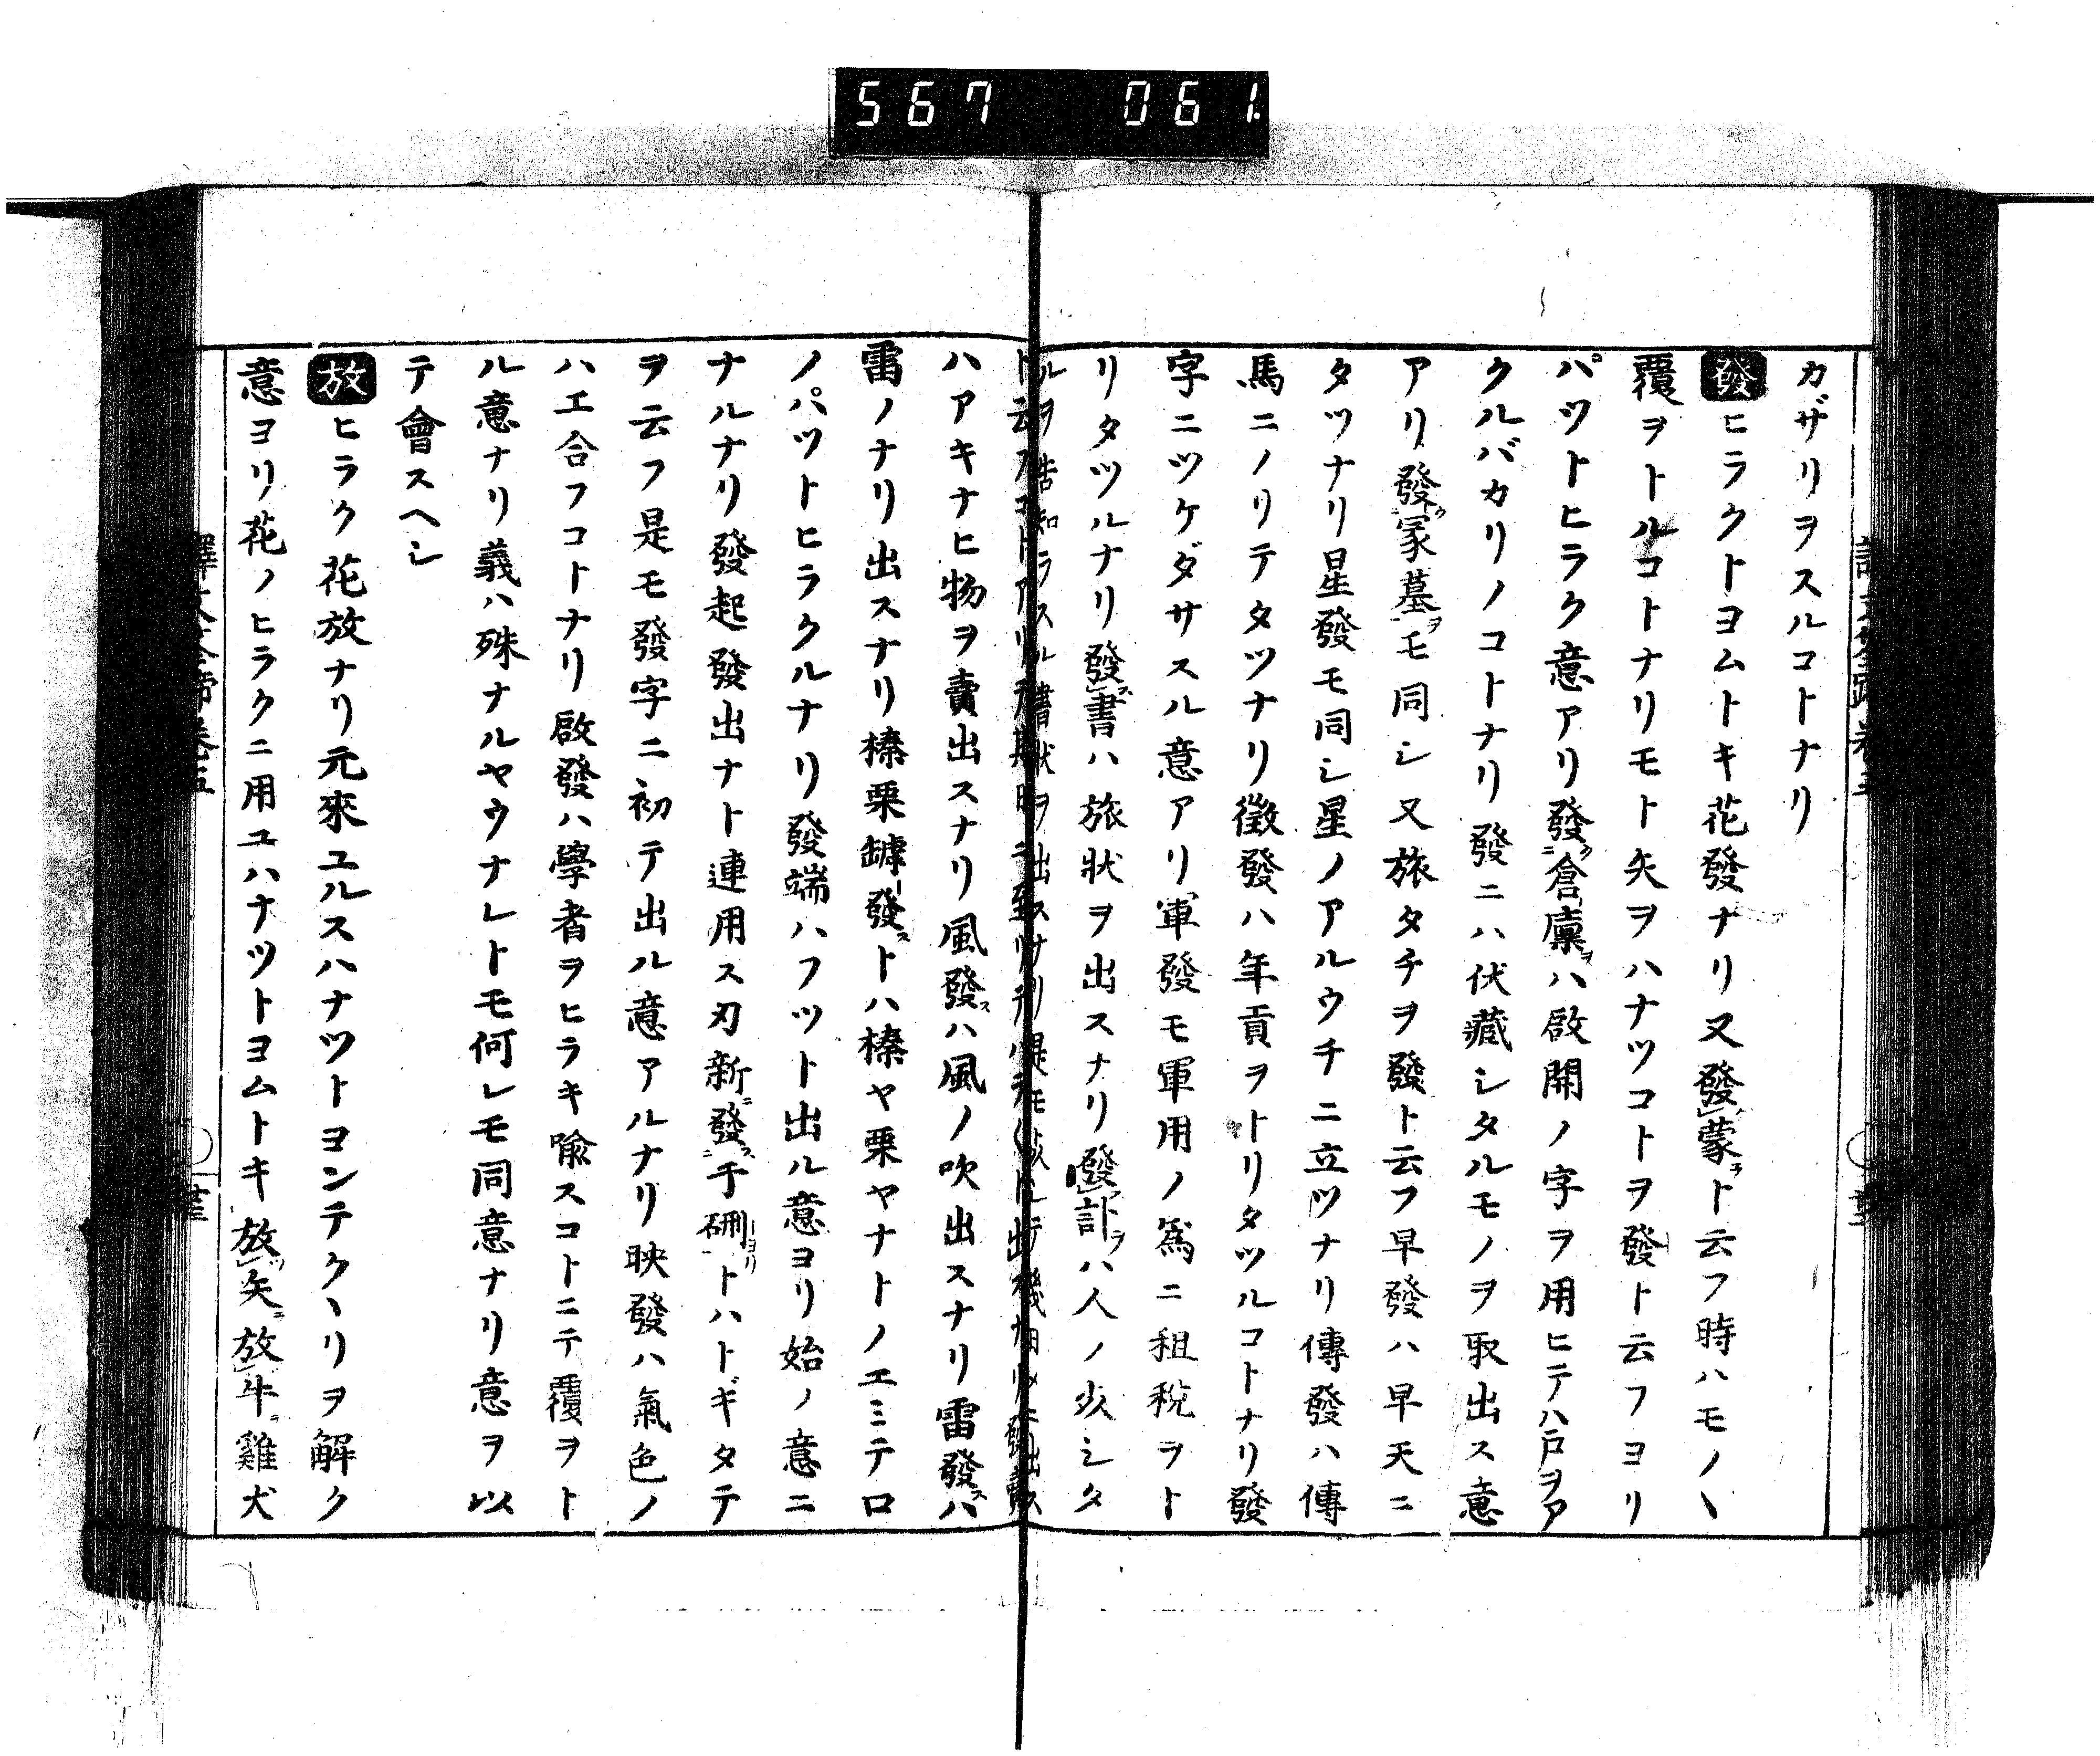 567 061
カザリヲスルコトナリ
發ヒラクトヨムトキ花發ナリ又發蒙ヲト云フ時ハモノヽ
覆ヲトルコトナリモト矢ヲハナツコトヲ發ト云フヨリ
パツトヒラク意アリ發ク倉廩ヲハ啟開ノ字ヲ用ヒテハ戸ヲア
クルバカリノコトナリ發ニハ伏藏シタルモノヲ取出ス意
アリ發ク冢墓ヲモ同シ又旅タチヲ發ト云フ早發ハ早天ニ
タツナリ星發モ同シ星ノアルウチニ立ツナリ傳發ハ傳
馬ニノリテタツナリ徵發ハ年貢ヲトリタツルコトナリ發
字ニツケダサスル意アリ軍發モ軍用ノ爲ニ租稅ヲト
リタツルナリ發ス書ハ旅狀ヲ出スナリ發訃ヲハ人ノ死シタ
ルヲ告知ラスル書狀ヲ出スナリ
ト云フコトアリ
ハアキナヒ物ヲ賣出スナリ風發スハ風ノ吹出スナリ雷發スハ
雷ノナリ出スナリ榛栗罅發ストハ榛ヤ栗ヤナトノエミテロ
ノパツトヒラクルナリ發端ハフツト出ル意ヨリ始ノ意ニ
ナルナリ發起發出ナト連用ス刃新ニ發ス于硎ヨリトハトギタテ
ヲ云フ是モ發字ニ初テ出ル意アルナリ映發ハ氣色ノ
ハエ合フコトナリ啟發ハ學者ヲヒラキ喩スコトニテ覆ヲト
ル意ナリ義ハ殊ナルヤウナレトモ何レモ同意ナリ意ヲ以
テ會スヘシ
放ヒラク花放ナリ元來ユルスハナツトヨンテクヽリヲ解ク
意ヨリ花ノヒラクニ用ユハナツトヨムトキ放ツ矢ヲ放牛ヲ雞犬